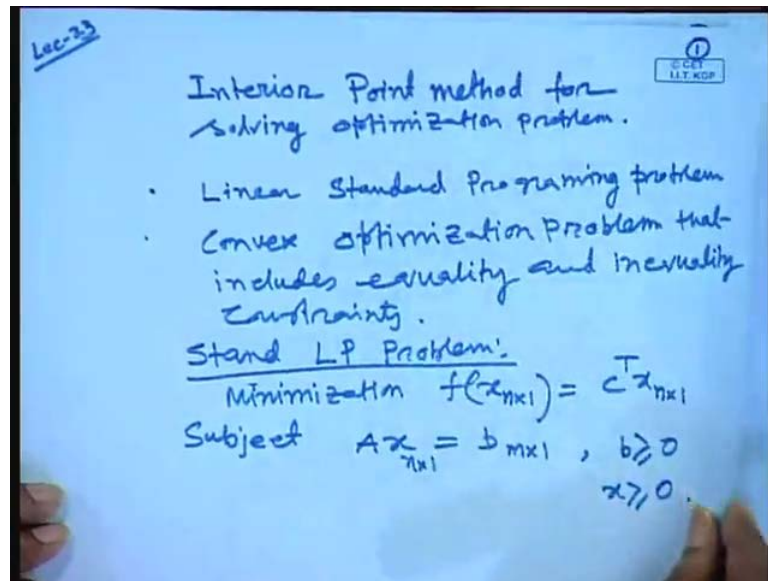 Lec-33
①
© CET
I.I.T. KGP
Interior Point method for
solving optimization problem.
· Linear Standard Programing problem
· Convex optimization Problem that
includes equality and inequality
constraints.
Stand LP Problem:
Minimization f(x_{n×1}) = c^T x_{n×1}
Subject A x_{n×1} = b_{m×1} , b ≥ 0
x ≥ 0 .